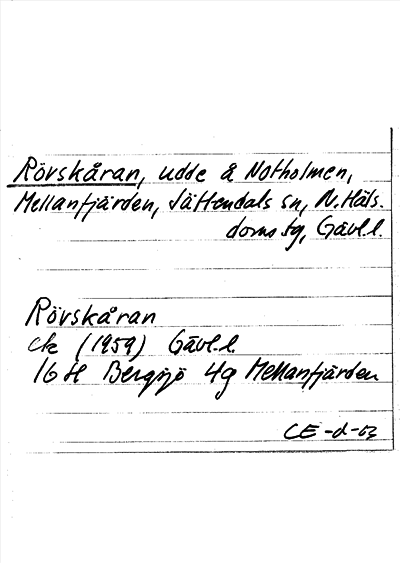 Rövskåran, udde å Notholmen,
Mellanfjärden, Jättendals sn, N. Häls.
doms tg, Gävl.l.
Rövskåran
ek (1959) Gävl.l.
16 H Bergsjö 4g Mellanfjärden
CE-d-53